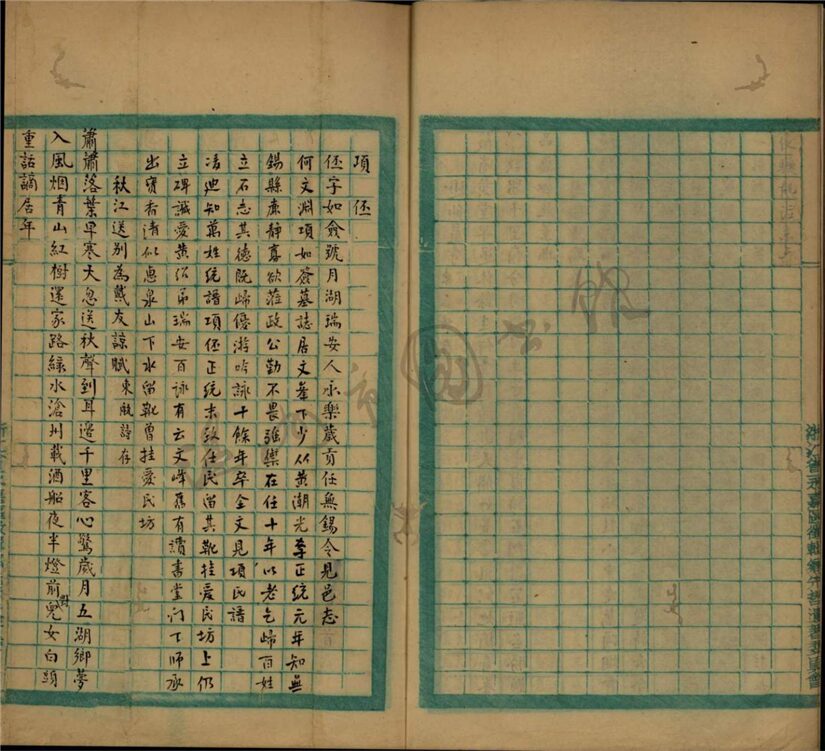 項伾
伾字如僉號月湖瑞安人永樂歲貢任無錫令見邑志
何文淵項如僉墓誌居文峯下少从黃潮光李正統元年知無
錫縣廉静寡欲蒞政公勤不畏強禦在任十年以老乞歸百姓
立石志其德既歸優游吟詠十餘年卒全文見項氏譜
凌迪知萬姓統譜項伾正統末致仕民留其靴挂愛民坊上仍
立碑誌愛黃紹第瑞安百詠有云文峰舊有讀書堂门下師承
出寳香清似惠泉山下水留靴曾挂愛民坊
秋江送别為戴友諒賦東甌詩存
蕭蕭落葉早寒天忽送秋聲到耳邊千里客心驚歲月五湖鄉夢
入風烟青山紅樹還家路綠水滄州載酒船夜半燈前對兒女白頭
重話謫居年